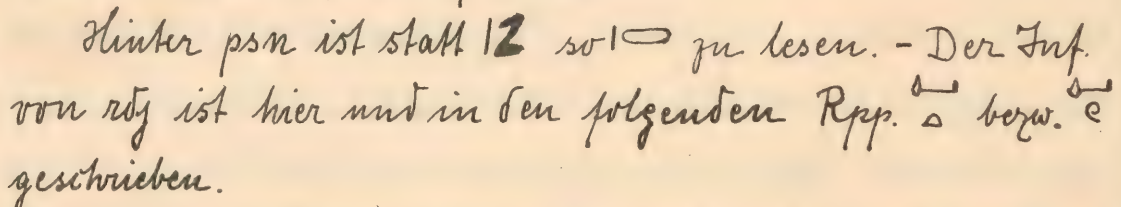 Hinter psn ist statt |2 so |𓏒 zu lesen. - Der Inf.
von rdj ist hier und in den folgenden Rpp. 𓂞𓏏 bezw. 𓂞
geschrieben.